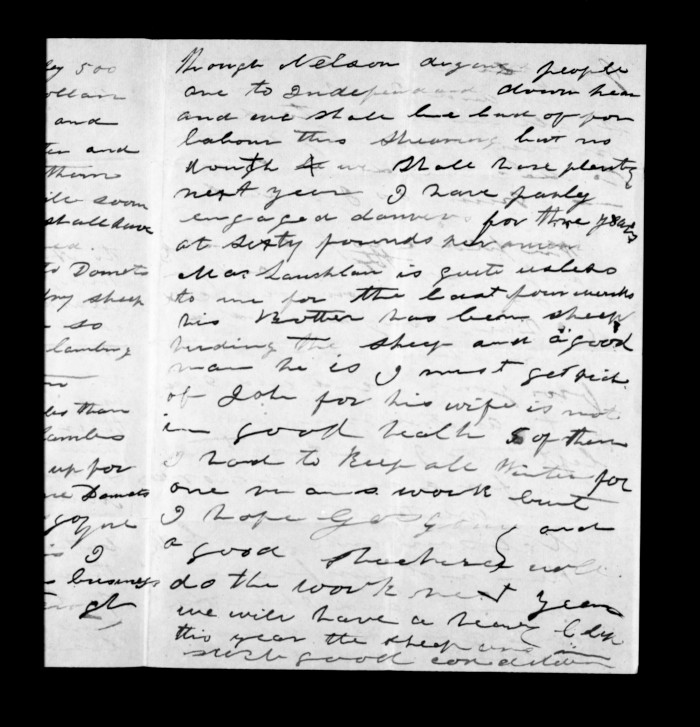 ley 500
ollars
and
ter and
them
ile soon
shall have
to Domets
my sheep
so
lambing
les than
lambs
up for
Domets
I
business
though Nelson people
are to Independant down hear
and we shall be bad of for
labour this shearing but no
doubth we shall have plenty
next year I have partly
engaged for three years
at sixty pounds per
MacLauchlan is quite usless
to me for the last four weeks
his Brother has been sheep
herding the sheep and a good
man he is I must get rid
of Joh for his wife is not
in good health 5 of them
I had to keep all Winter for
one mans work but
I hope and
a good will
do the work next year
we will have a heavy Clip
this year the sheep are in
such good condition